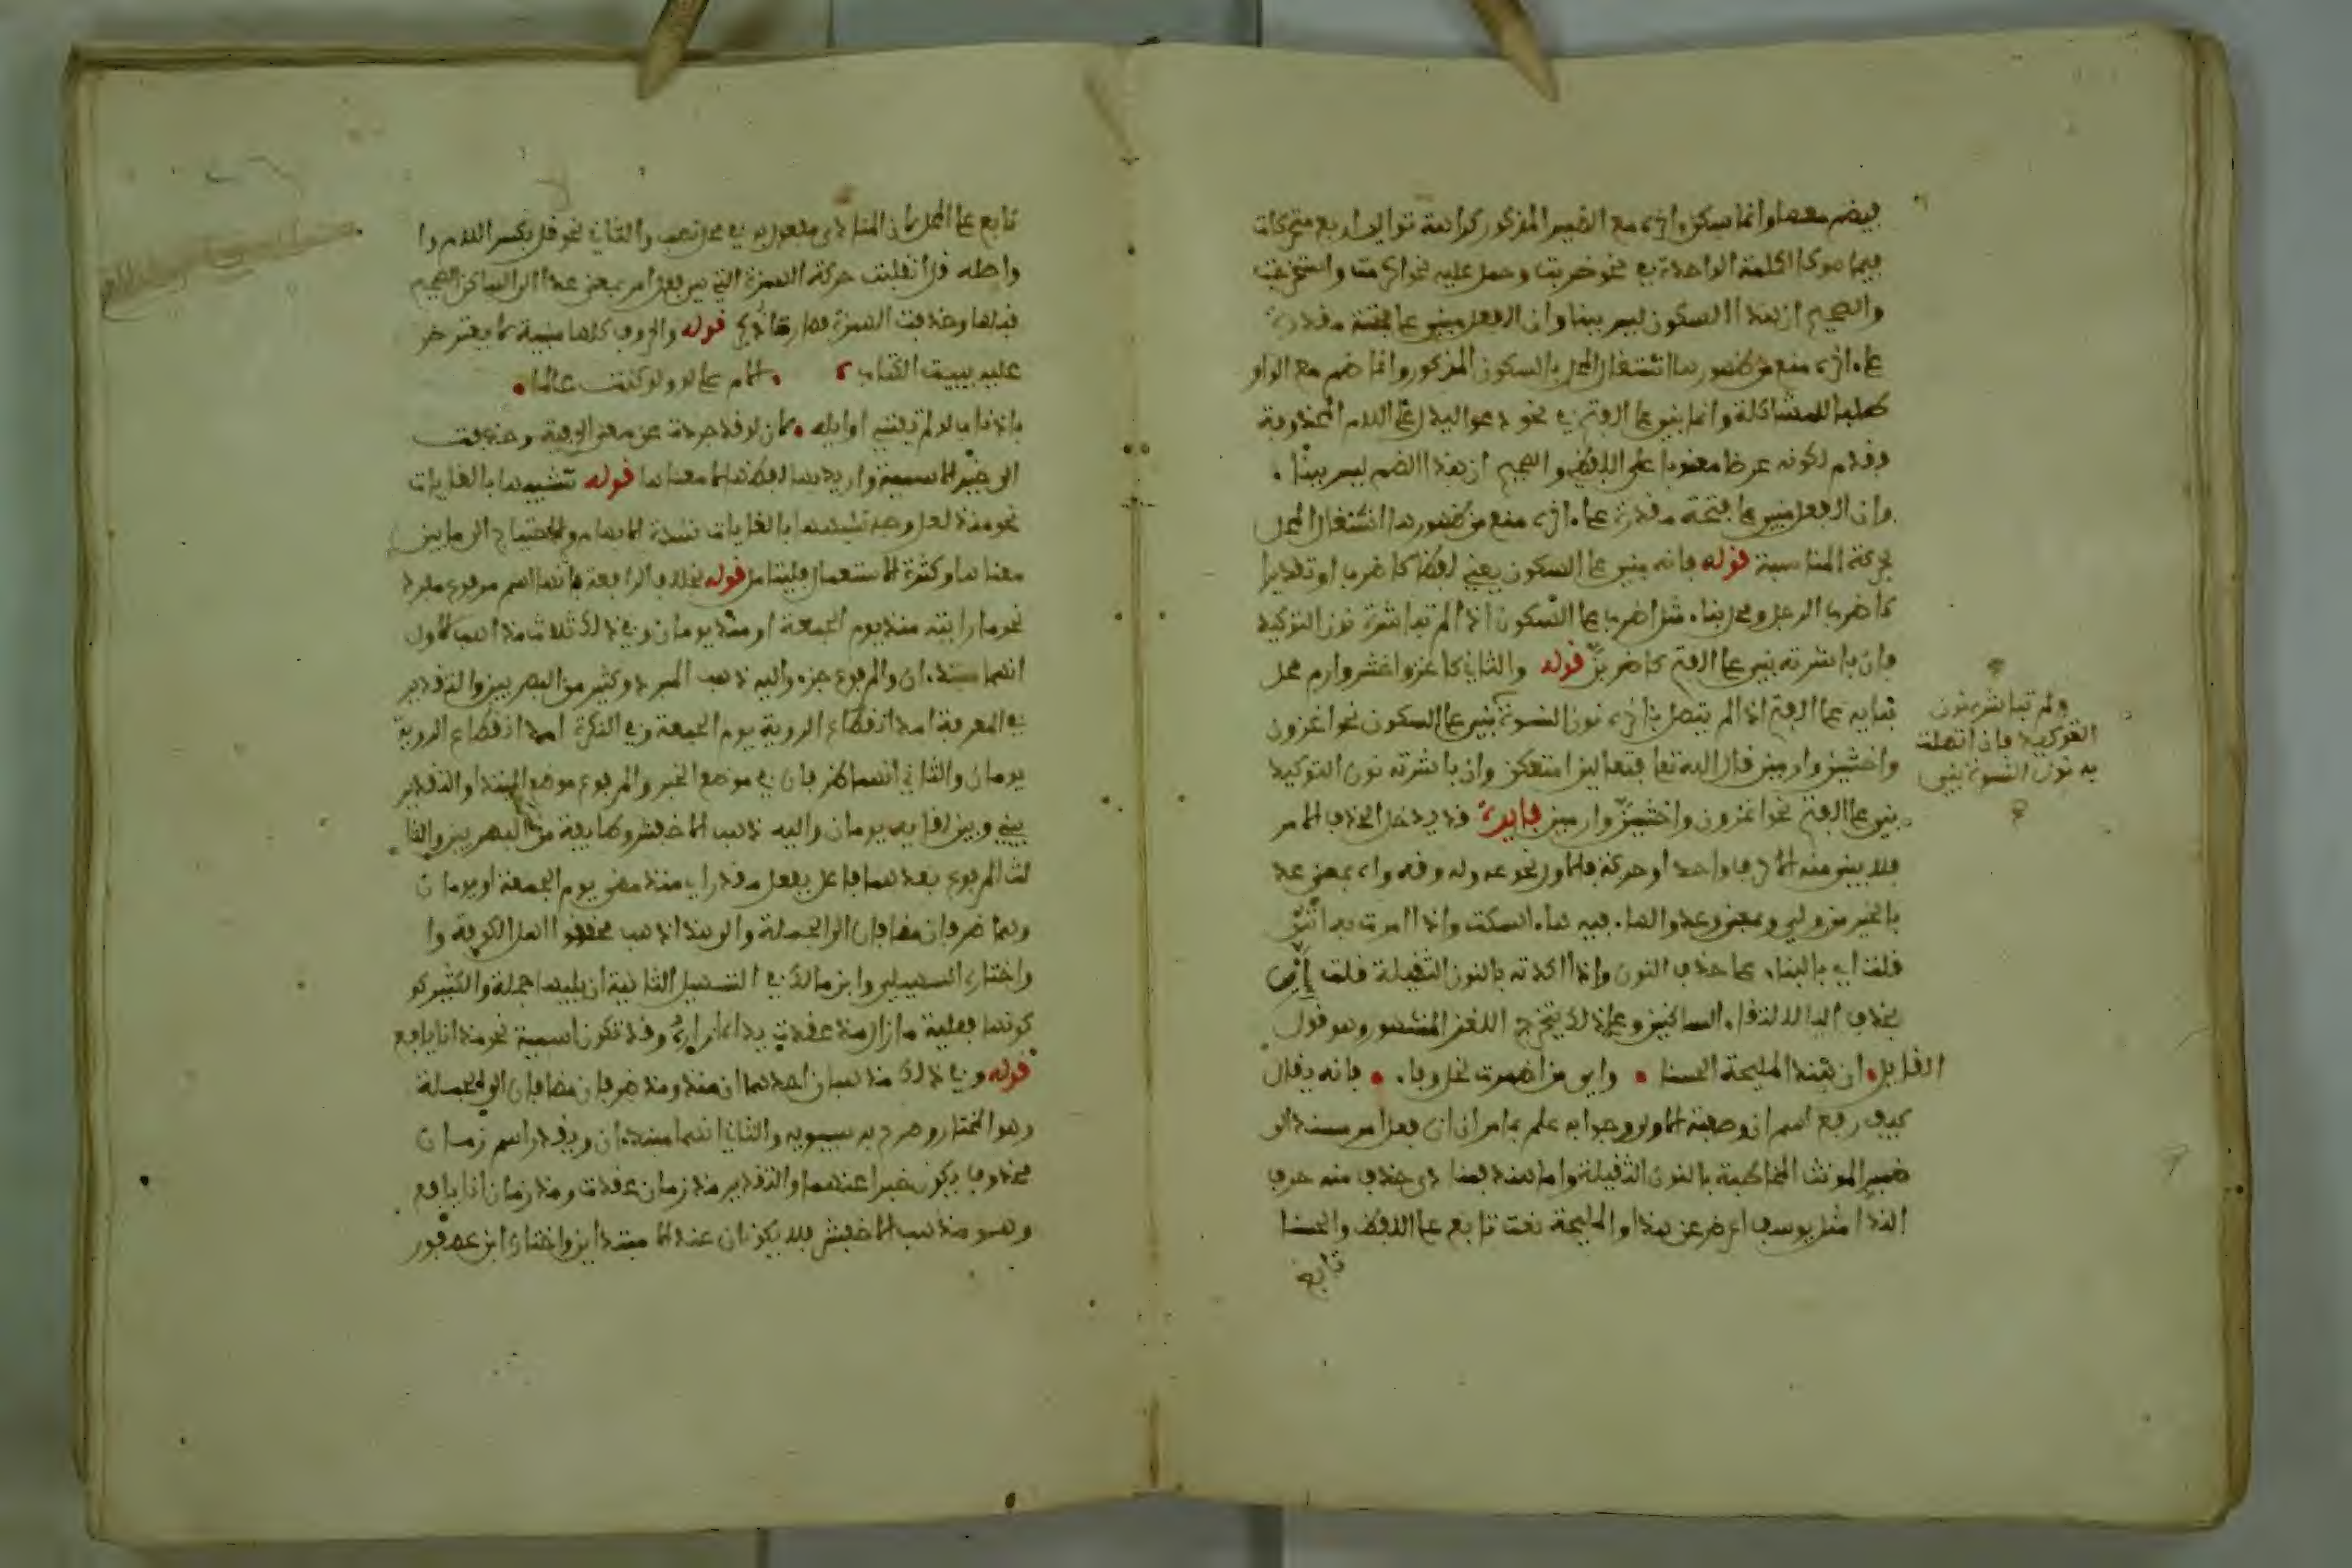 فيضم معها وانما سكن واخره مع الضمير المذكور كراهة توالي اربع متحركات
فيما هو كالكلمة الواحدة في نحو ضربت وحمل عليه نحو اكرمت واستخرجت
والصحيح ان هذا السكون ليس بينا وان الفعل مبني على فتحة مقدرة
على اخره منع من ظهورها اشتغال المحل بالسكون المذكور وانما ضم مع الواو
طلبا للمشاكلة وانما بني على الفتح في نحو دعوا ليدل على اللام المحذوفة
وقدم لكونه عرضا على اللفظ والصحيح ان هذا الضم ليس بينا
وان الفعل مبني على فتحة مقدرة على اخره منع من ظهورها اشتغال المحل
بحركة المناسبة قوله فانه يبنى على السكون يعني لفظا كاضرب او تقديرا
كاضرب الرجل مثل اضرب على السكون اذا لم تباشره نون التوكيد
فان باشرته بني على الفتح كاضربن قوله والثاني كاغز واخش وارم محل
بنايه على الفتح اذا لم يتصل باخره نون النسوة بني على السكون نحو اغزون
واخشين وارمين قال الله تعالى فتعالين امتعكن وان باشرته نون التوكيد
بني على الفتح نحو اغزون واخشين وارمين فايدة قد يدخل الحذف الامر
فلا يبقى منه الا حرف واحد او حركة فالاول نحو عه وله وقه واه بمعنى عد
بالخير من ولي وبمعنى وعد والهاء فيه هاء السكت واذا امرت به انثى
قلت اي بالبناء على حذف النون واذا اكدته بالنون الثقيلة قلت إِنّ
بحذف الياء لالتقاء الساكنين وعلى ذلك يتخرج اللغز المشهور وهو قول
القايل ان هند المليحة الحسنا وأي من اضمرت لخل وفاء فانه يقال
كيف رفع اسم ان وصفته الاولى وجوابه علم بما مر ان ان فعل امر مسند الى
ضمير المونث المخاطبة بالنون الثقيلة واما هند فمنادى حذف منه حرف
الندا مثل يوسف اعرض عن هذا والمليحة نعت تابع على اللفظ والحسنا
تابع
ولم تباشره نون
التوكيد فان اتصلت
به نون النسوة بني
تابع على المحل لان المنادى مفعول به في محل نصب والثاني نحو قل بكسر اللام وا
واصله قل انقلبت حركة الهمزة التي هي فعل امر بمعنى عد الى الساكن الصحيح
قبلها وحذفت الهمزة قوله والحروف كلها مبنية لا يعترض
عليه ببيت الكتاب الام على لو ولو كنت عالما
باذناب لو لم تفتني اوايله لان لو قد جردت عن معنى الحرفية وحذفت
الى حيز الاسمية واريد بها لفظها لا معناها قوله تشبيها بالغايات
نحو منذ لعل وجه تشبيهها بالغايات شدة الابهام والاحتياج الى ما يبين
معناها وكثرة الاستعمال فليتامل قوله بخلاف الرافعة فانها اسم مرفوع مفرد
نحو ما رايته منذ يوم الجمعة او منذ يومان وفي ذلك ثلاث مذاهب الاول
انهما مبتدان والمرفوع خبره واليه ذهب المبرد وكثير من البصريين والتقدير
في المعرفة امد انقطاع الروية يوم الجمعة وفي النكرة امد انقطاع الروية
يومان والثاني انهما ظرفان في موضع الخبر والمرفوع موضع المبتدا والتقدير
بيني وبين لقايه يومان واليه ذهب الاخفش وطايفة من البصريين والثا
لث المرفوع بعدهما فاعل بفعل مقدر اي منذ مضى يوم الجمعة او يومان
وهما ظرفان مضافان الى الجملة والى هذا ذهب محققوا اهل الكوفة وا
واختاره السهيلي وابن مالك في التسهيل الثانية ان يليها جملة والكثير كو
كونها فعلية ما زال منذ عقدت يداه ازاره وقد تكون اسمية نحو منذ انا يافع
قوله وفي ذلك مذهبان احدهما ان منذ ومذ ظرفان مضافان الى الجملة
وهو المختار وصرح به سيبويه والثاني انهما مبتدان ويقدر اسم زمان
محذوف يكون خبرا عنهما والتقدير مذ زمان عقدت ومذ زمان انا يافع
وهو مذهب الاخفش فلا يكونان عنده الا مبتداين واختاره ابن عصفور